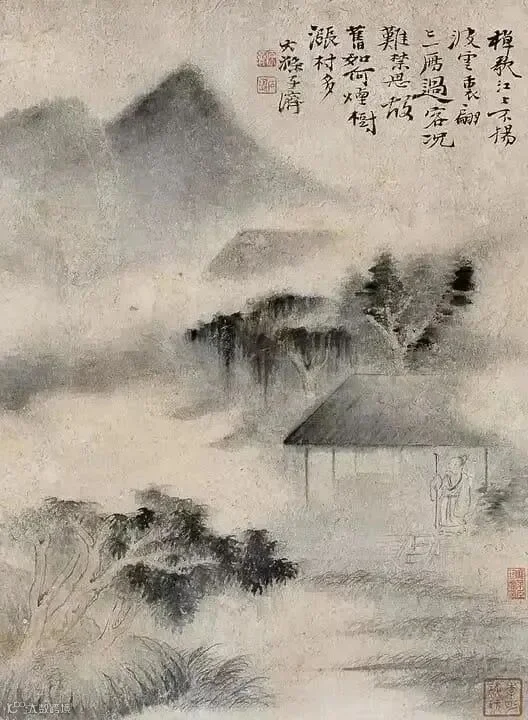 棹歌江上不揚
波雲裏翩
〻鴈過客況
難禁思故
舊如何煙樹
漲村多
大滌子濟
大数跨境